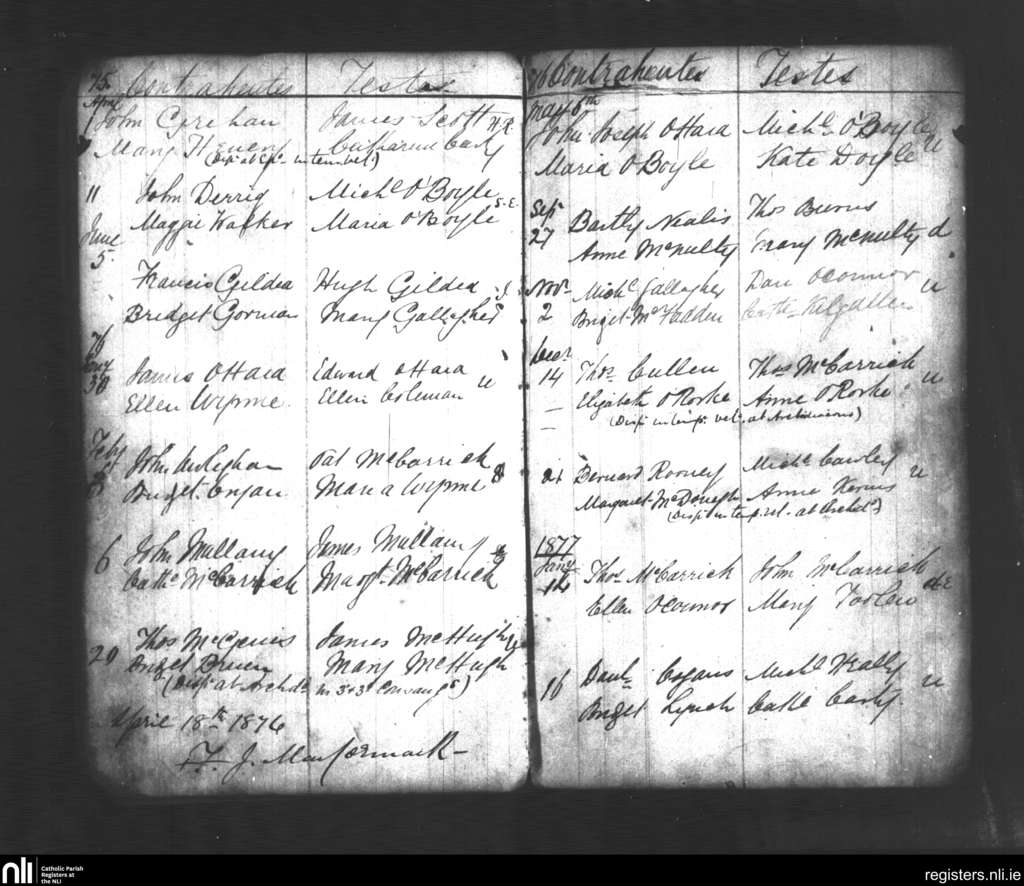 75. Contrahentes Testes
April
1 John Crehan James Scott
Mary Catharine
(Disp. at Ep. in temp. vel.)
11 John Derrig Michl O'Boyle
Maggie Walker Maria O'Boyle
June
5 Francis Gildea Hugh Gildea
Bridget Gorman Mary Gallagher
76
Jany
30 James OHara Edward OHara u
Ellen Wynne Ellen Coleman
Feby
John Pat McCarrick
Bridget Maria Wynne
6 John Mullany James Mullany
Cathe McCarrick Margt. McCarrick
20 Thos McGinis James McHugh
Bridget Mary McHugh
(Disp. at Archd. in 3 & 3 Consang.)
April 18th 1876
F. J. MacCormack
76 Contrahentes Testes
May 6th
John Joseph OHara Michl O'Boyle u
Maria O'Boyle Kate Doyle
Sepr
27 Bartly Nealis Thos Burns
Anne McNulty McNulty d
Novr
2 Michl Gallagher Dan OConnor u
Briget McFadden Cathe Kilgallen
Decr
14 Thos. Cullen Thos McCarrick u
Elizabeth O'Rorke Anne O'Rorke
(Disp. in temp. vel. at Archidiaconus)
21 Bernard Rooney Michl Cawley u
Margaret McDonogh Anne Kerins
(Disp. in temp. vel. at Archd.)
1877
Jany
14 Thos McCarrick John McCarrick
Ellen OConnor Mary
16 Danl. Cogans Michl Healy u
Briget Lynch Cathe Carty
nli Catholic Parish
Registers at
the NLI
registers.nli.ie